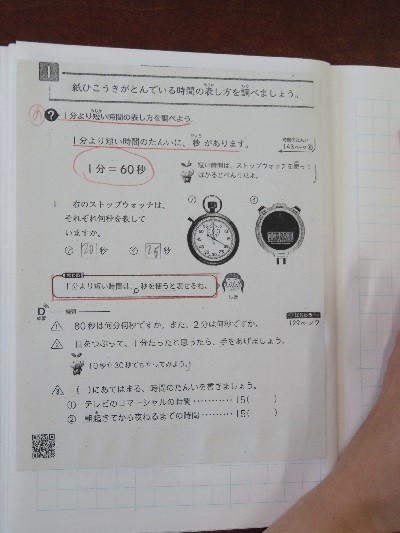 1
紙ひこうきがとんでいる時間の表し方を調べましょう。
め ? 1分より短い時間の表し方を調べよう。
1分より短い時間のたんいに、秒があります。
時間のたんい
143ページ
1分=60秒
短い時間は、ストップウォッチを使って
はかるとべんりだよ。
1 右のストップウォッチは、
それぞれ何秒を表して
いますか。
あ い
あ 20秒 い 25秒
1分より短い時間は、秒を使うと表せるね。
80秒は何分何秒ですか。また、2分は何秒ですか。
129ページ
目をつぶって、1分たったと思ったら、手をあげましょう。
10秒や30秒でもやってみよう。
( )にあてはまる、時間のたんいを書きましょう。
① テレビのコマーシャルの時間 ………… 15( )
② 朝起きてから夜ねるまでの時間 ……… 15( )